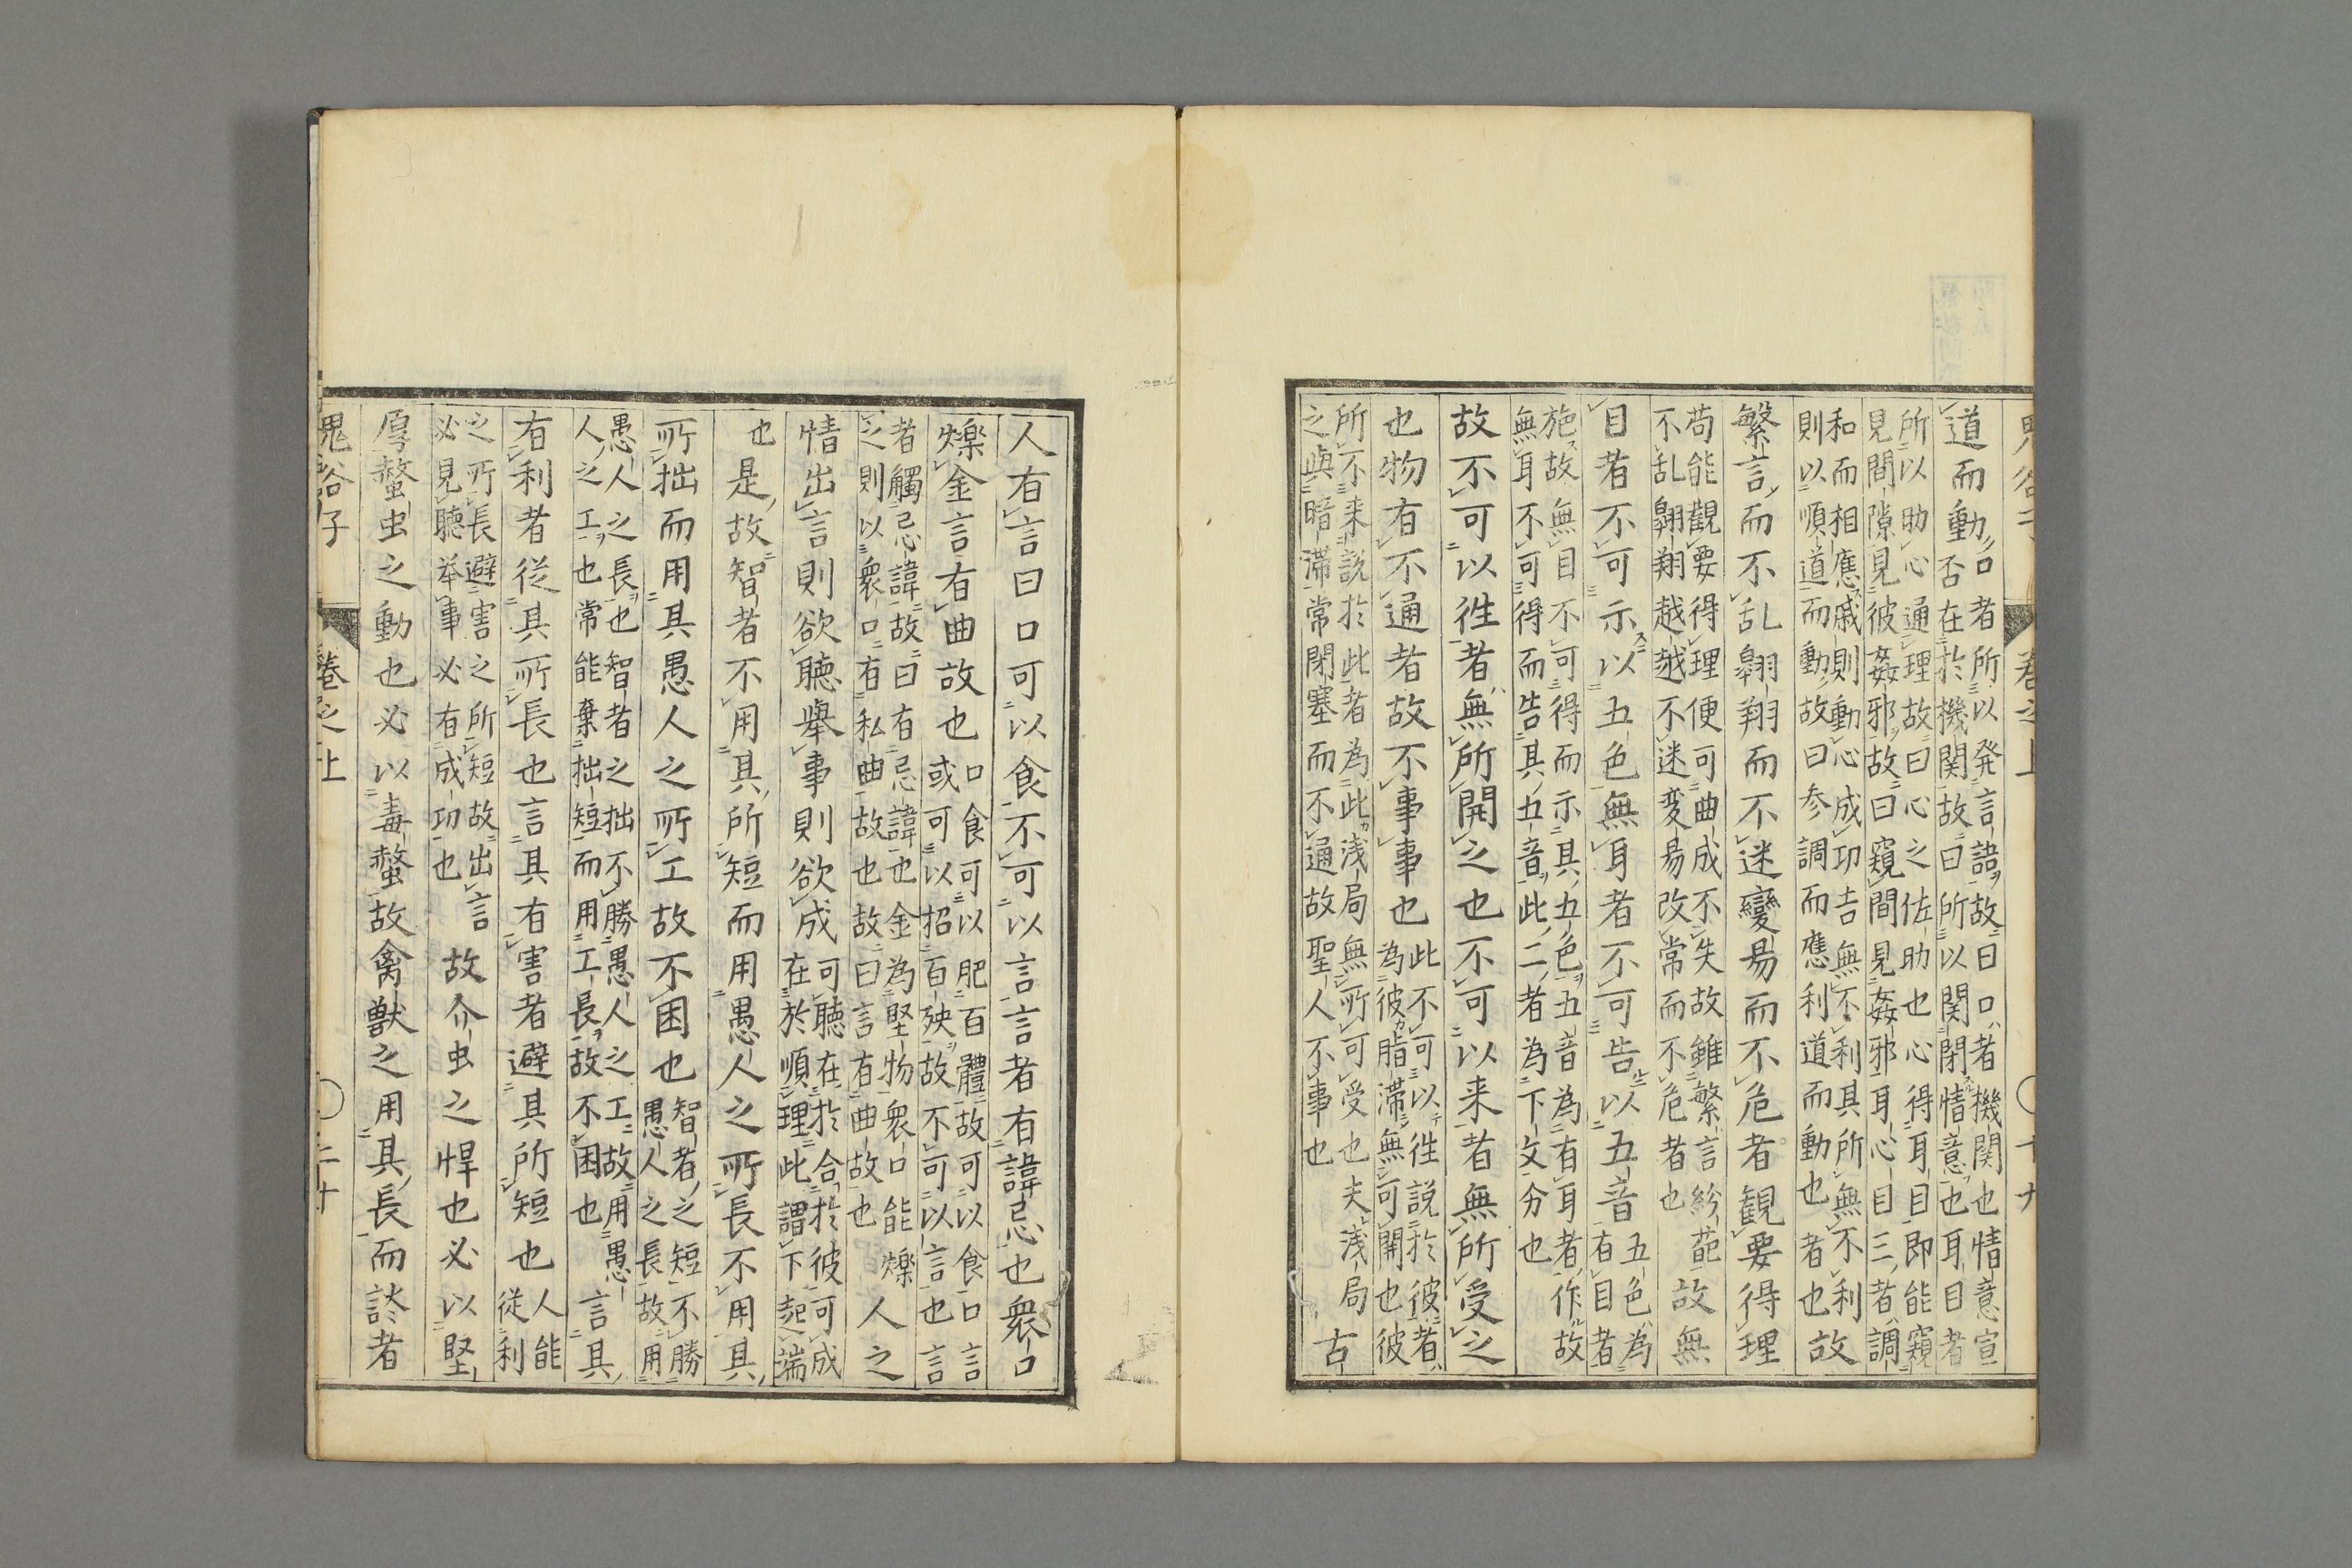 鬼谷子 卷之上 十九
道而動
口者所以発言語故曰口者機関也情意宣
否在於機関故曰所以関閉情意也耳目者
所以助心通理故曰心之佐助也心得耳目即能窺
見間隙見彼姦邪故曰窺間見姦邪耳心目三者調
和而相應感則動心成功吉無不利其所無不利
則以順道而動故曰参調而應利道而動也者也
故
繁言而不乱翱翔而不迷變易而不危者観要得理
苟能觀要得理便可曲成不失故雖繁言紛葩
不乱翱翔越越不迷変易改常而不危者也
故無
目者不可示以五色無耳者不可告以五音
五色為
有目者
施故無目不可得而示其五色五音為有耳者作故
無耳不可得而告其五音此二者為下文分也
故不可以徃者無所開之也不可以来者無所受之
也物有不通者故不事事也
此不可以徃説於彼者
為彼脂滞無可開也彼
所不来説於此者為此浅局無所可受也夫浅局
之與暗滞常閉塞而不通故聖人不事也
古
人有言曰口可以食不可以言言者有諱忌也衆口
爍金言有曲故也
口食可以肥百體故可以食口言
或可以招百殃故不可以言也言
者觸忌諱故曰有忌諱也金為堅物衆口能爍
之則以衆口有私曲故也故曰言有曲故也
人之
情出言則欲聴舉事則欲成
可聴在於合於彼可成
在於順理此謂下起端
也
是故智者不用其所短而用愚人之所長不用其
所拙而用其愚人之所工故不困也
智者之短不勝
愚人之長故用
愚人之長也智者之拙不勝愚人之工故用愚
人之工也常能棄拙短而用工長故不困也
言其
有利者從其所長也言其有害者避其所短也
人能
従利
之所長避害之所短故出言
必見聴举事必有成功也
故介虫之悍也必以堅
厚螫虫之動也必以毒螫故禽獣之用其長而談者
鬼谷子 卷之上 二十